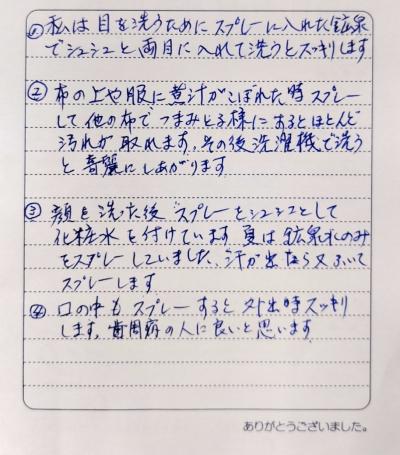 ①私は目を洗うためにスプレーに入れた鉱泉
でシュシュと両目に入れて洗うとスッキリします
② 布の上や服に煮汁がこぼれた時スプレー
して他の布でつまみとる様にするとほとんど
汚れが取れます。その後洗濯機で洗う
と綺麗にしあがります
③ 顔を洗った後スプレーをシュシュとして
化粧水を付けています 夏は鉱泉水のみ
をスプレーしていました、汗が出たら又ふいて
スプレーします
④ 口の中もスプレーすると外出時スッキリ
します。歯周病の人に良いと思います
ありがとうございました。